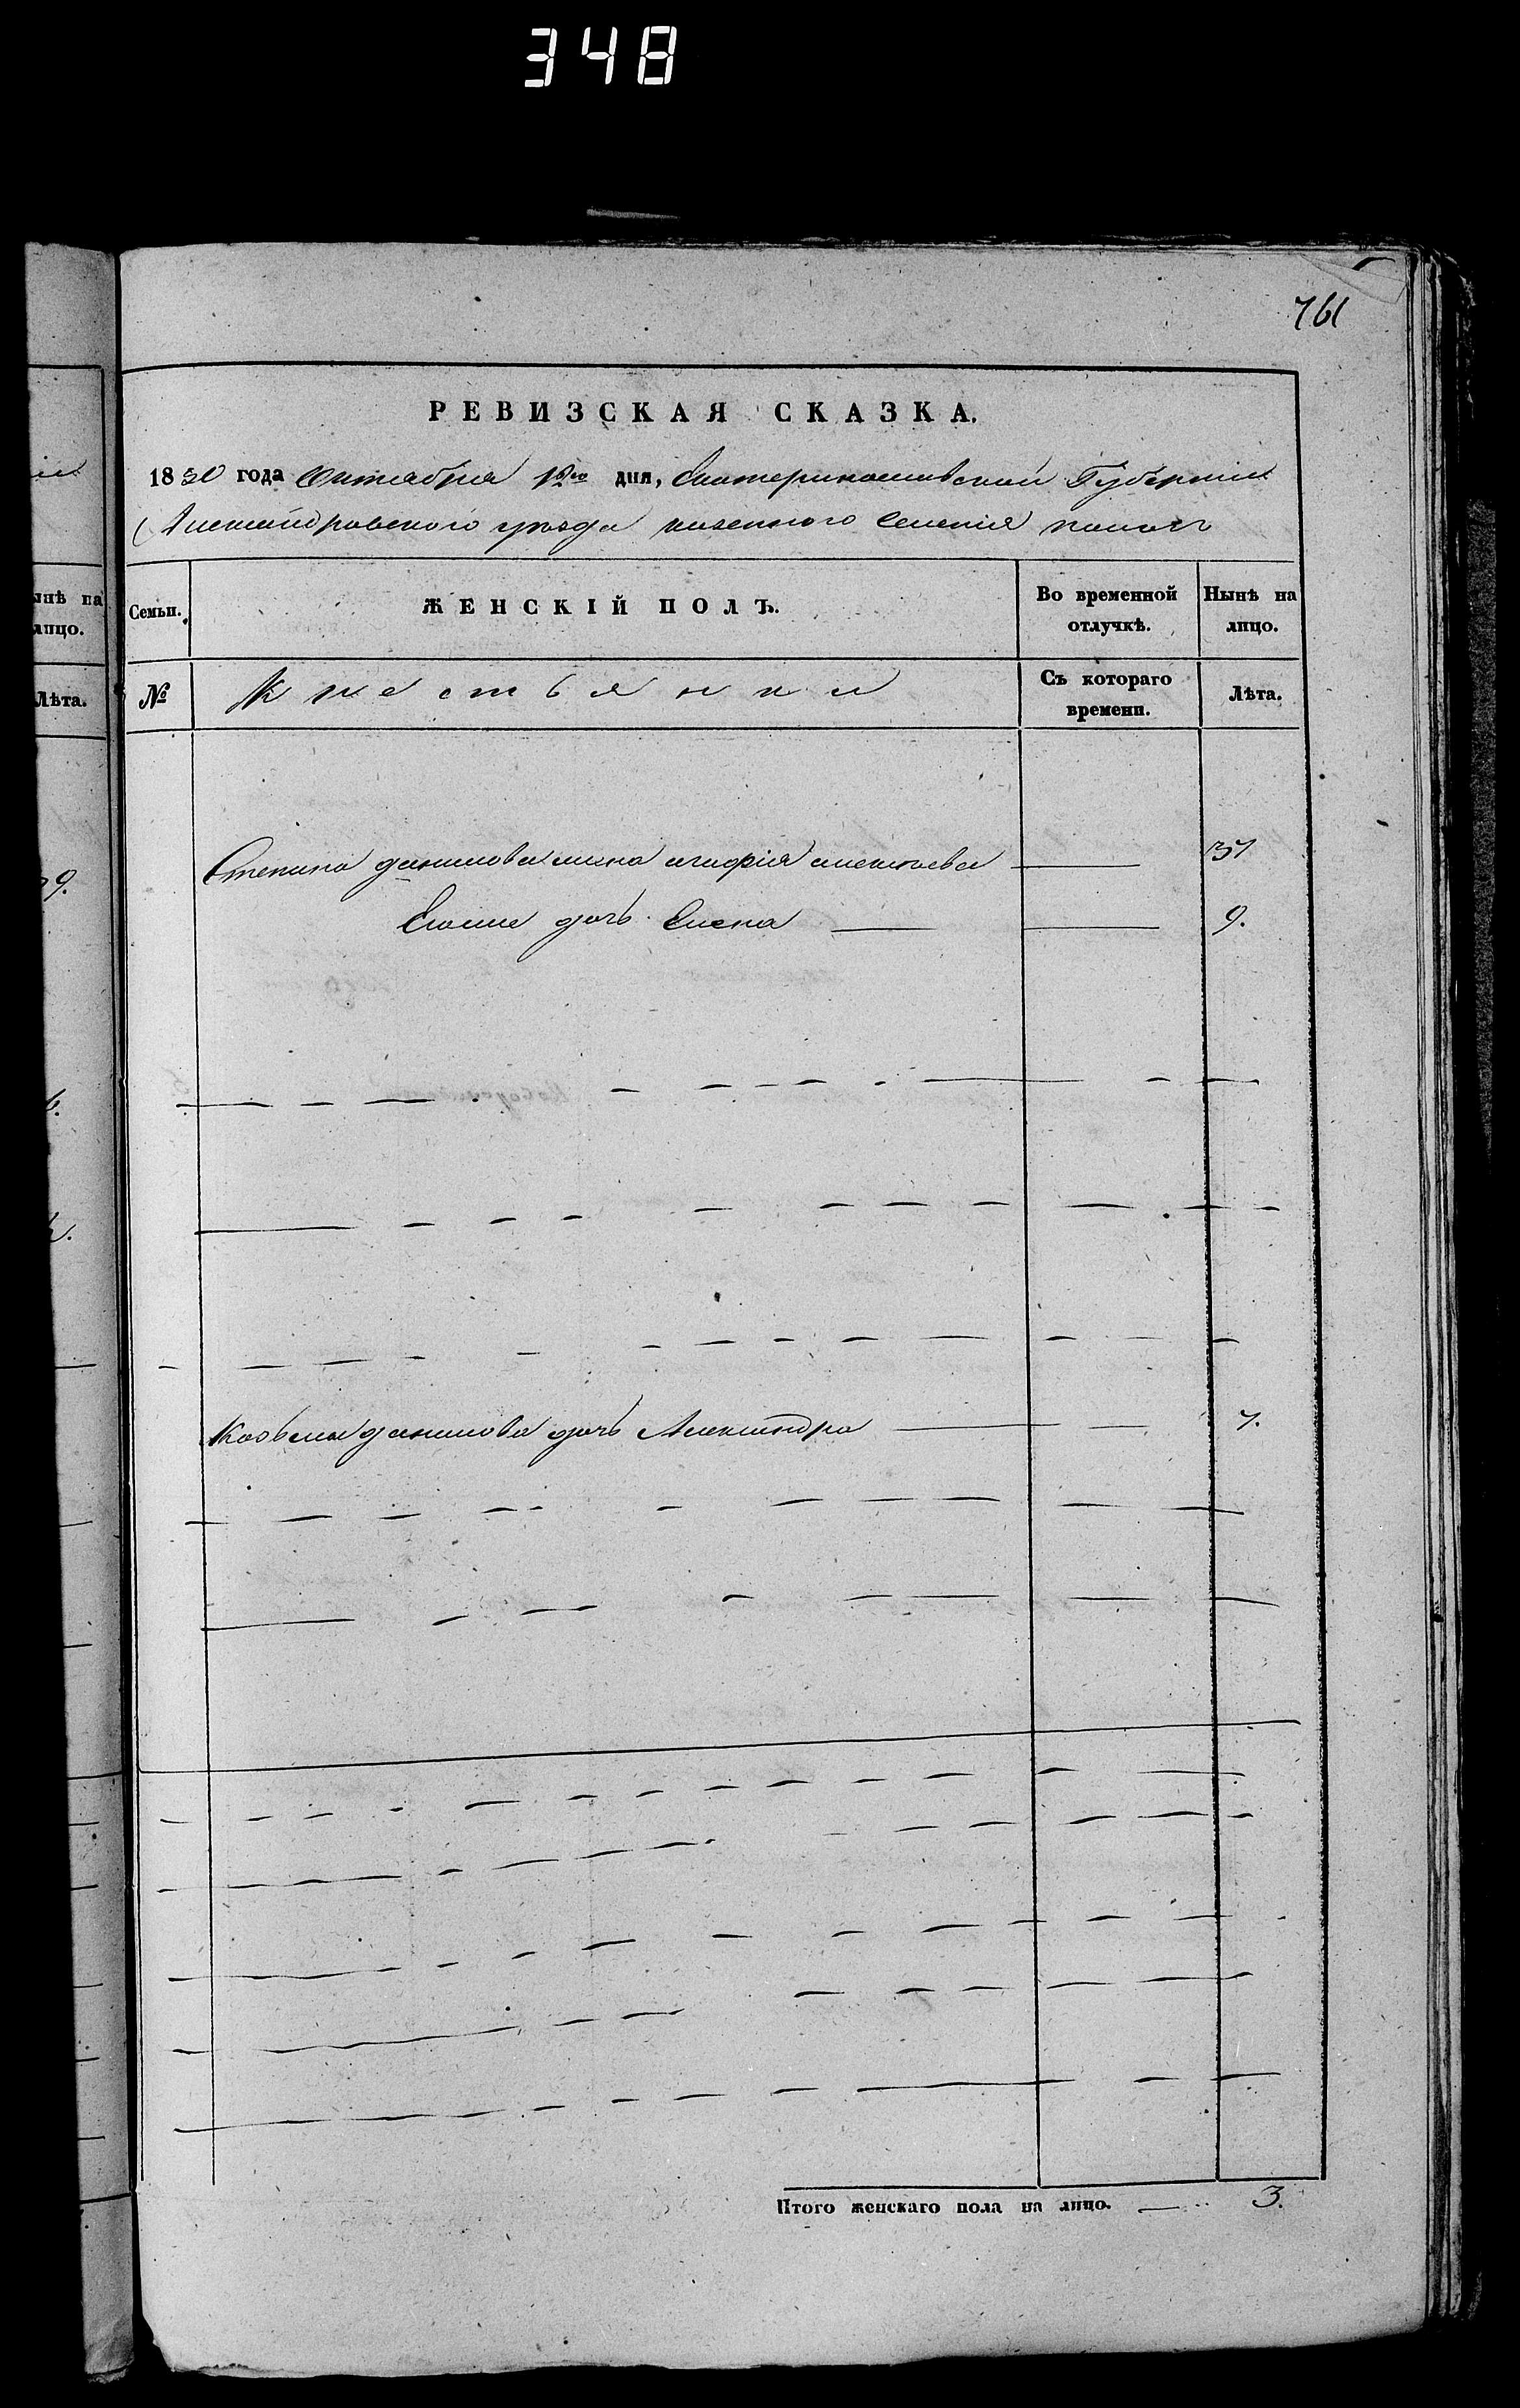 348
761
РЕВИЗСКАЯ СКАЗКА.
1850 года Октября 18го дня, Екатеринославской Губернии
Александровского уезда казенного селения
ынѣ на лицо.
Лѣта.
Семьи. ЖЕНСКІЙ ПОЛЪ. Во временной отлучкѣ. Нынѣ на лицо.
№ Крестьянки Съ котораго времени. Лѣта.
Степана данилова жена агафія алексеева 37
Егоже дочь Елена 9.
Козьмы данилова дочь Александра 7.
Итого женскаго пола на лицо. 3.